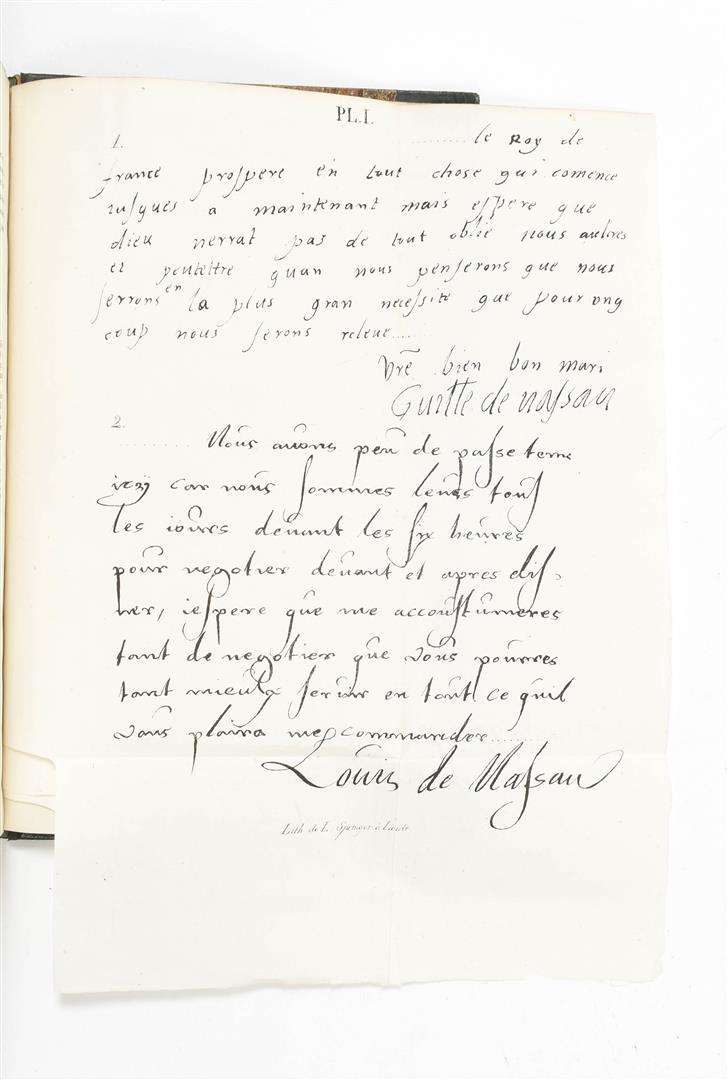 PL.I.
1.
......... le Roy de
france prospere en tout chose qui comence
iusques a maintenant mais espere que
dieu nerrat pas de tout oblie nous aultres
et peuttettre quan nous penserons que nous
serrons en la plus gran necessite que pour ung
coup nous serons releue.....
vre bien bon mari
Guille de nassau
2.
......... Nous auons peu de passe tems
car nous sommes leues tous
les iours deuant les six heures
pour negotier deuant et apres dis-
ner, iespere que me accoustumeres
tant de negotier que vous pourres
tant mieulx seruir en tout ce quil
vous plaira me commander.........
Louis de Nassau
Lith. de L. Spenger à Leide